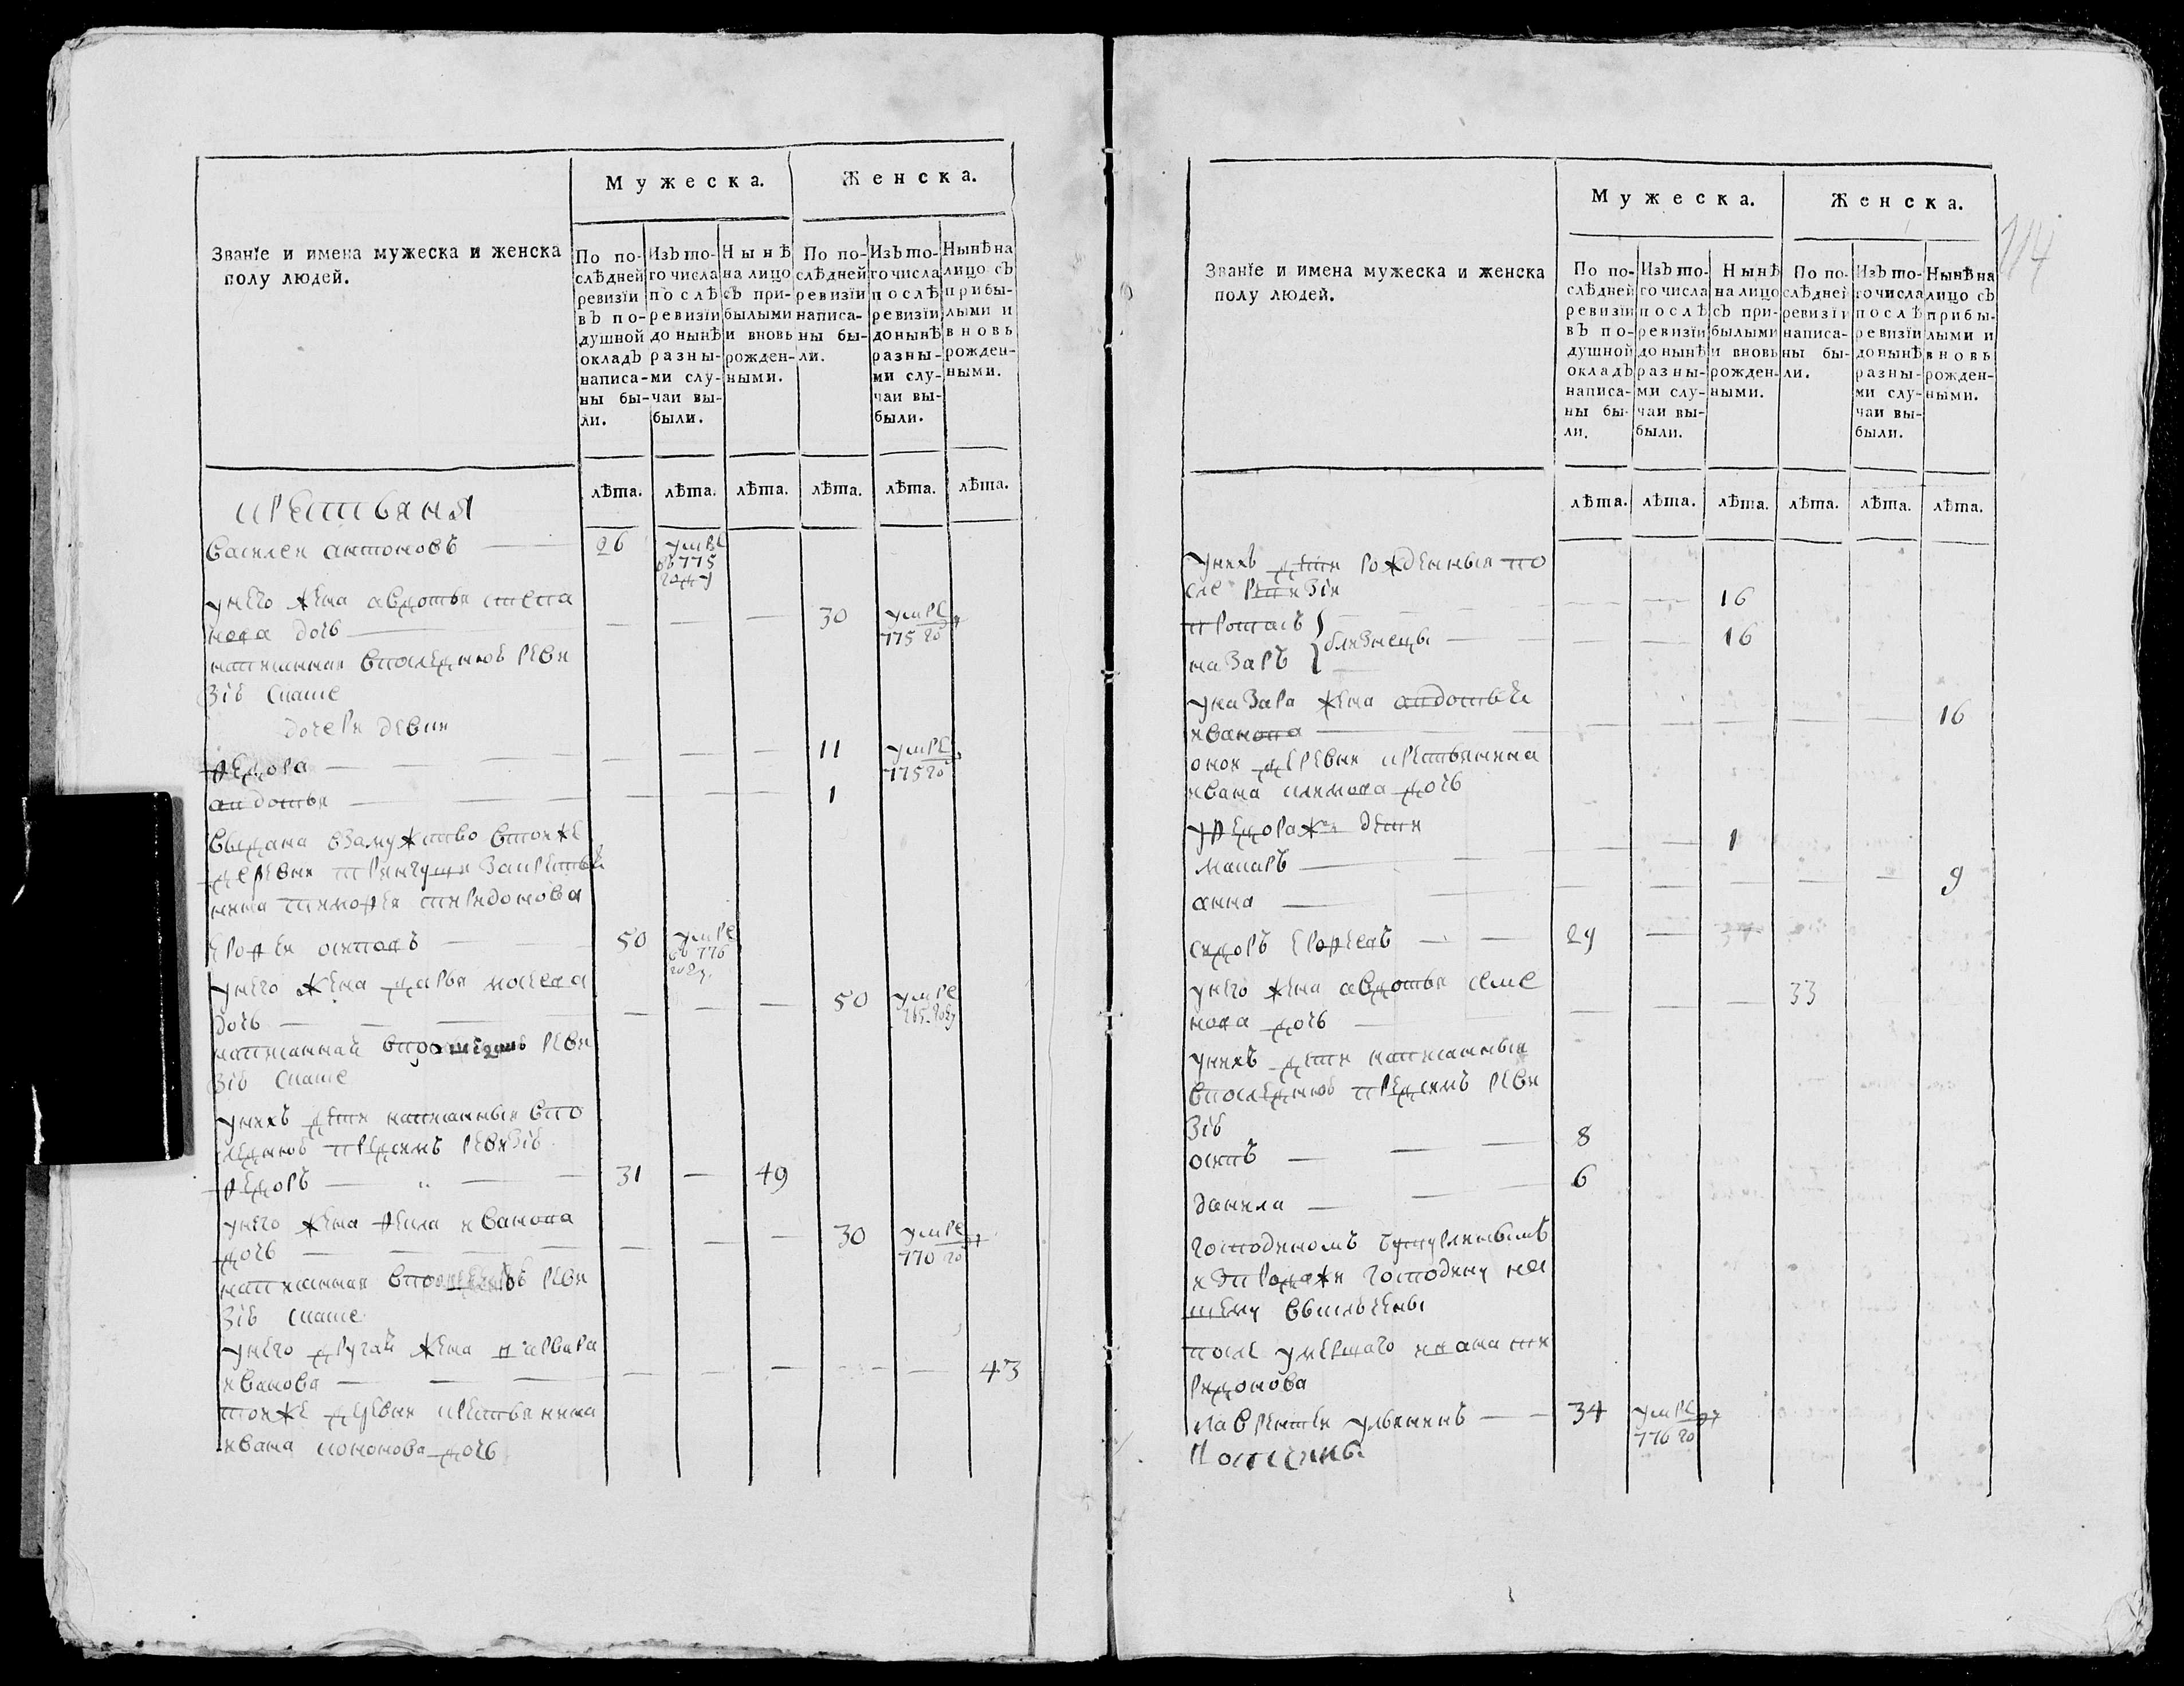 Мужеска.
Женска.
Званїе и имена мужеска и женска
полу людей.
По по-
слѣдней
ревизїи
въ по-
душной
окладъ
написа-
ны бы-
ли.
Изъ то-
го числа
послѣ
ревизїи
до нынѣ
разны-
ми слу-
чаи вы-
были.
Нынѣ
на лицо
съ при-
былыми
и вновь
рожден-
ными.
По по-
слѣдней
ревизїи
написа-
ны бы-
ли.
Изъ то-
го числа
послѣ
ревизїи
до нынѣ
разны-
ми слу-
чаи вы-
были.
Нынѣ на
лицо съ
прибы-
лыми и
вновь
рожден-
ными.
лѣта. лѣта. лѣта. лѣта. лѣта. лѣта.
крестьяня
василеи антоновъ 26 умре
въ 775
году
унего жена авдотья степа
нова дочь 30 умре
775 го
написанная впоследнюю реви
зїю скаске
дочери девки
федора 11 умре
775 го
авдотья 1
выдана взамужство втоиже
деревни закрестья
нина тимофея спиридонова
ерофеи осиповъ 50 умре
въ 776
году
унего жена дарья мосеева
дочь 50 умре
году
написанная реви
зїю скаске
унихъ дети написанныя впо
следнюю предсимъ ревизїю
федоръ 31 49
унего жена фекла иванова
дочь 30 умре
770 го
написанная реви
зїю скаске
унего другая жена варвара
иванова 43
тоиже деревни крестьянина
ивана кононова дочь
114
Мужеска.
Женска.
Званїе и имена мужеска и женска
полу людей.
По по-
слѣдней
ревизїи
въ по-
душной
окладъ
написа-
ны бы-
ли.
Изъ то-
го числа
послѣ
ревизїи
до нынѣ
разны-
ми слу-
чаи вы-
были.
Нынѣ
на лицо
съ при-
былыми
и вновь
рожден-
ными.
По по-
слѣдней
ревизїи
написа-
ны бы-
ли.
Изъ то-
го числа
послѣ
ревизїи
до нынѣ
разны-
ми слу-
чаи вы-
были.
Нынѣ на
лицо съ
прибы-
лыми и
вновь
рожден-
ными.
лѣта. лѣта. лѣта. лѣта. лѣта. лѣта.
унихъ дети рожденныя по
сле ревизїи
протасъ 16
близнецы
назаръ 16
уназара жена авдотья
иванова 16
онои деревни крестьянина
ивана климова дочь
уфедора ж дети
макаръ 1
анна 9
сидоръ ерофеевъ 29
унего жена авдотья семе
нова дочь 33
унихъ дети написанныя
впоследнюю предсимъ реви
зїю
осипъ 8
данила 6
господиномъ
изпродажи господину на
шему
после умершаго ивана спи
ридонова
лаврентеи ульянинъ 34 умре
776 го